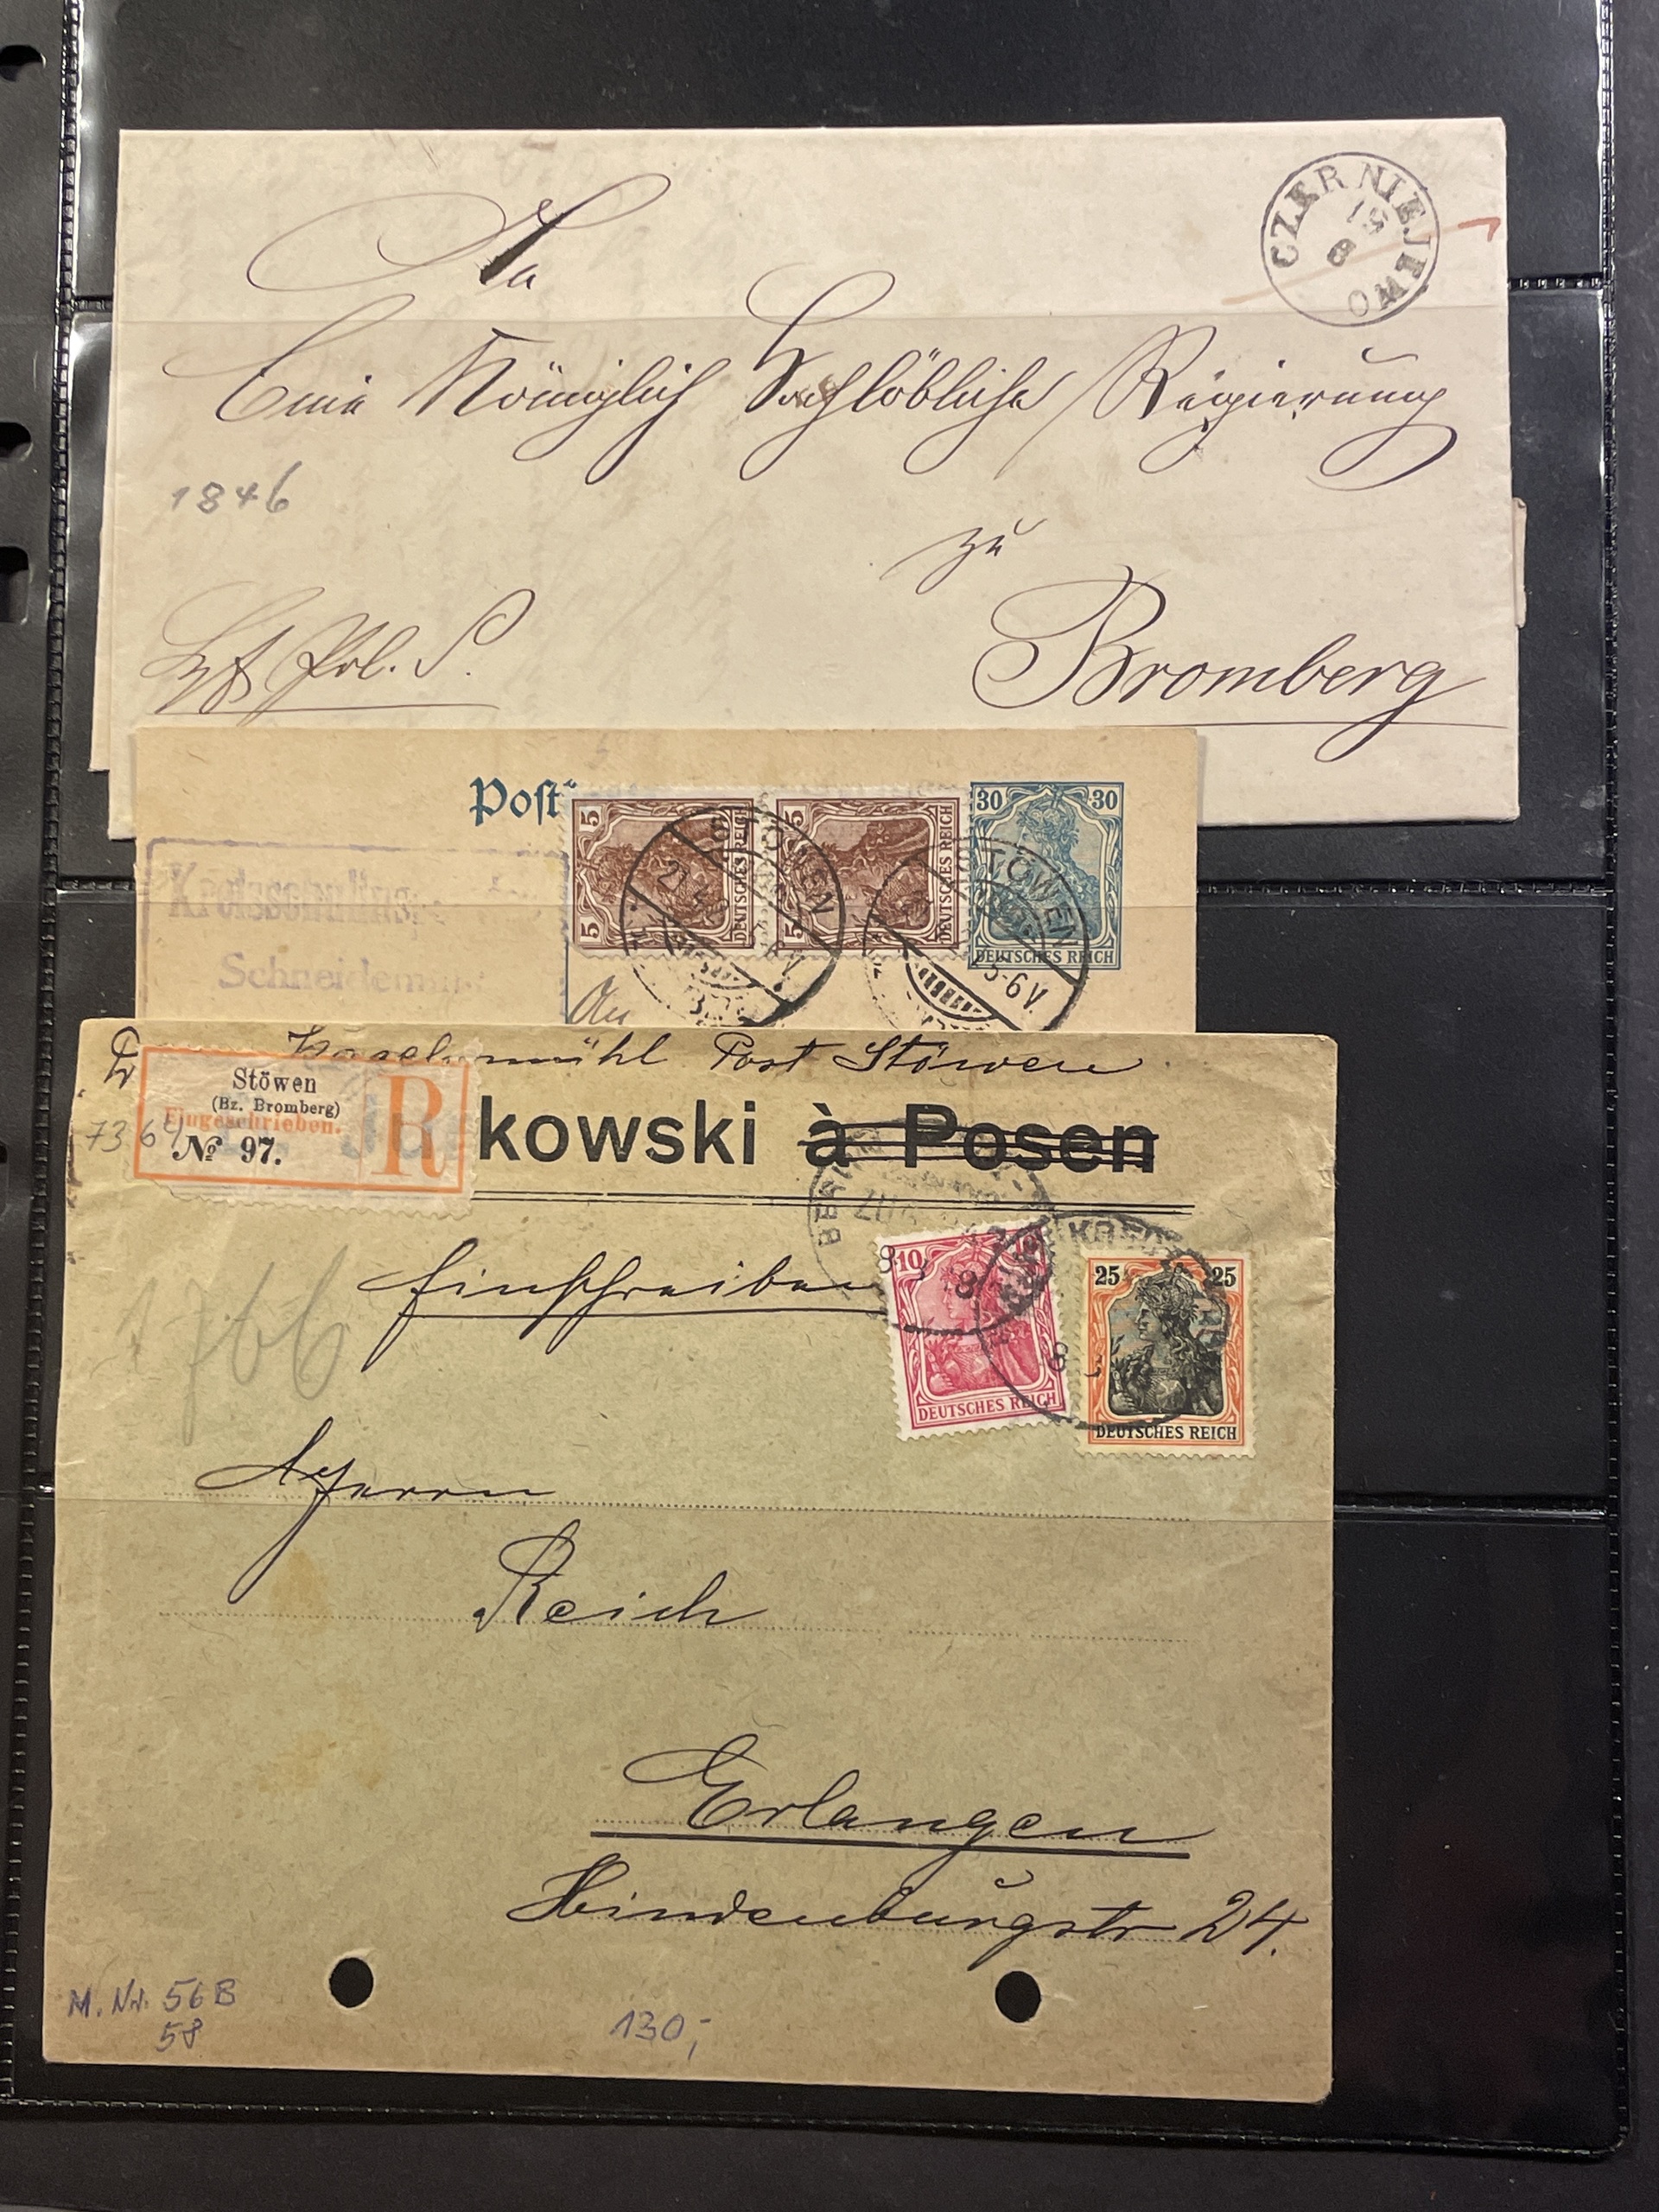 CZERNIEJEWO
15
8
An
Eine Königlich Hochlöbliche Regierung
1846
zu
Bromberg
Post
5 5
DEUTSCHES REICH
5 5
DEUTSCHES REICH
30 30
DEUTSCHES REICH
STÖWEN
STÖWEN
5-6V.
Schneidemühl
An
Post Stöwen
Stöwen
(Bz. Bromberg)
Eingeschrieben.
№ 97.
R
kowski à Posen
Einschreiben
10
DEUTSCHES REICH
25 25
DEUTSCHES REICH
1766
Herrn
Reich
Erlangen
Hindenburgstr 24.
M. Nr. 56B
58
130,-